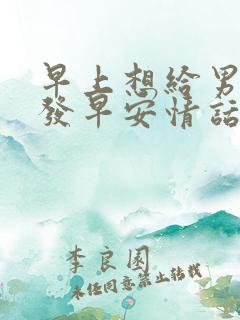 早上想給男
發早安情話
李良園
未经同意禁止转载